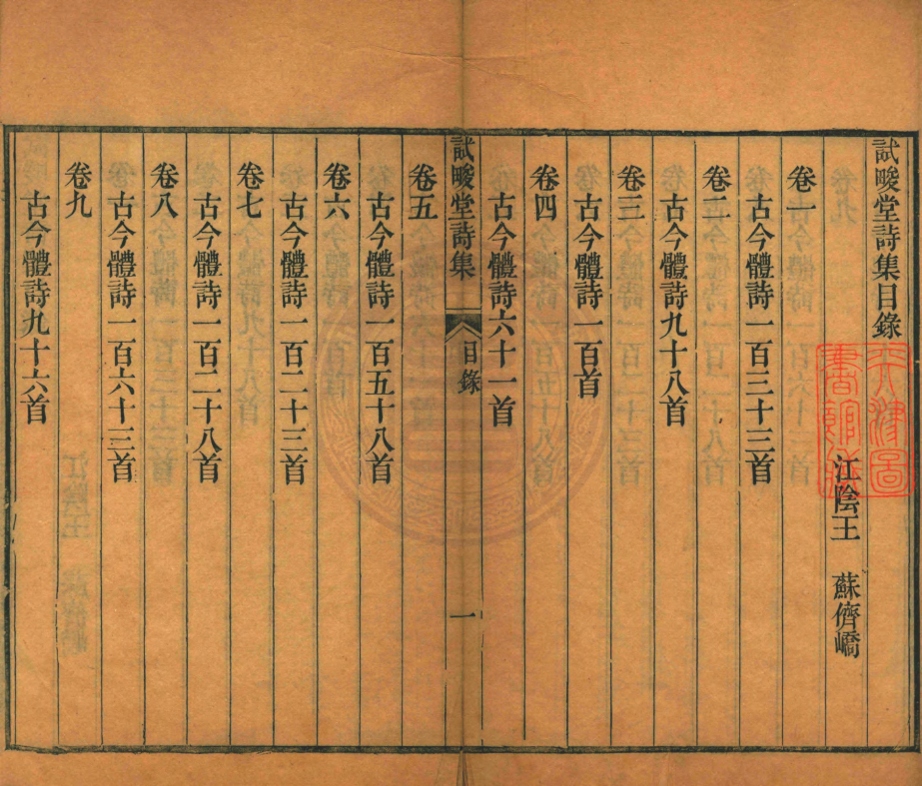 試畯堂詩集目錄
江陰王 蘇儕嶠
卷一
古今體詩一百三十三首
卷二
古今體詩九十八首
卷三
古今體詩一百首
卷四
古今體詩六十一首
試畯堂詩集 目錄 一
卷五
古今體詩一百五十八首
卷六
古今體詩一百二十三首
卷七
古今體詩一百二十八首
卷八
古今體詩一百六十三首
卷九
古今體詩九十六首
天津圖
書館藏